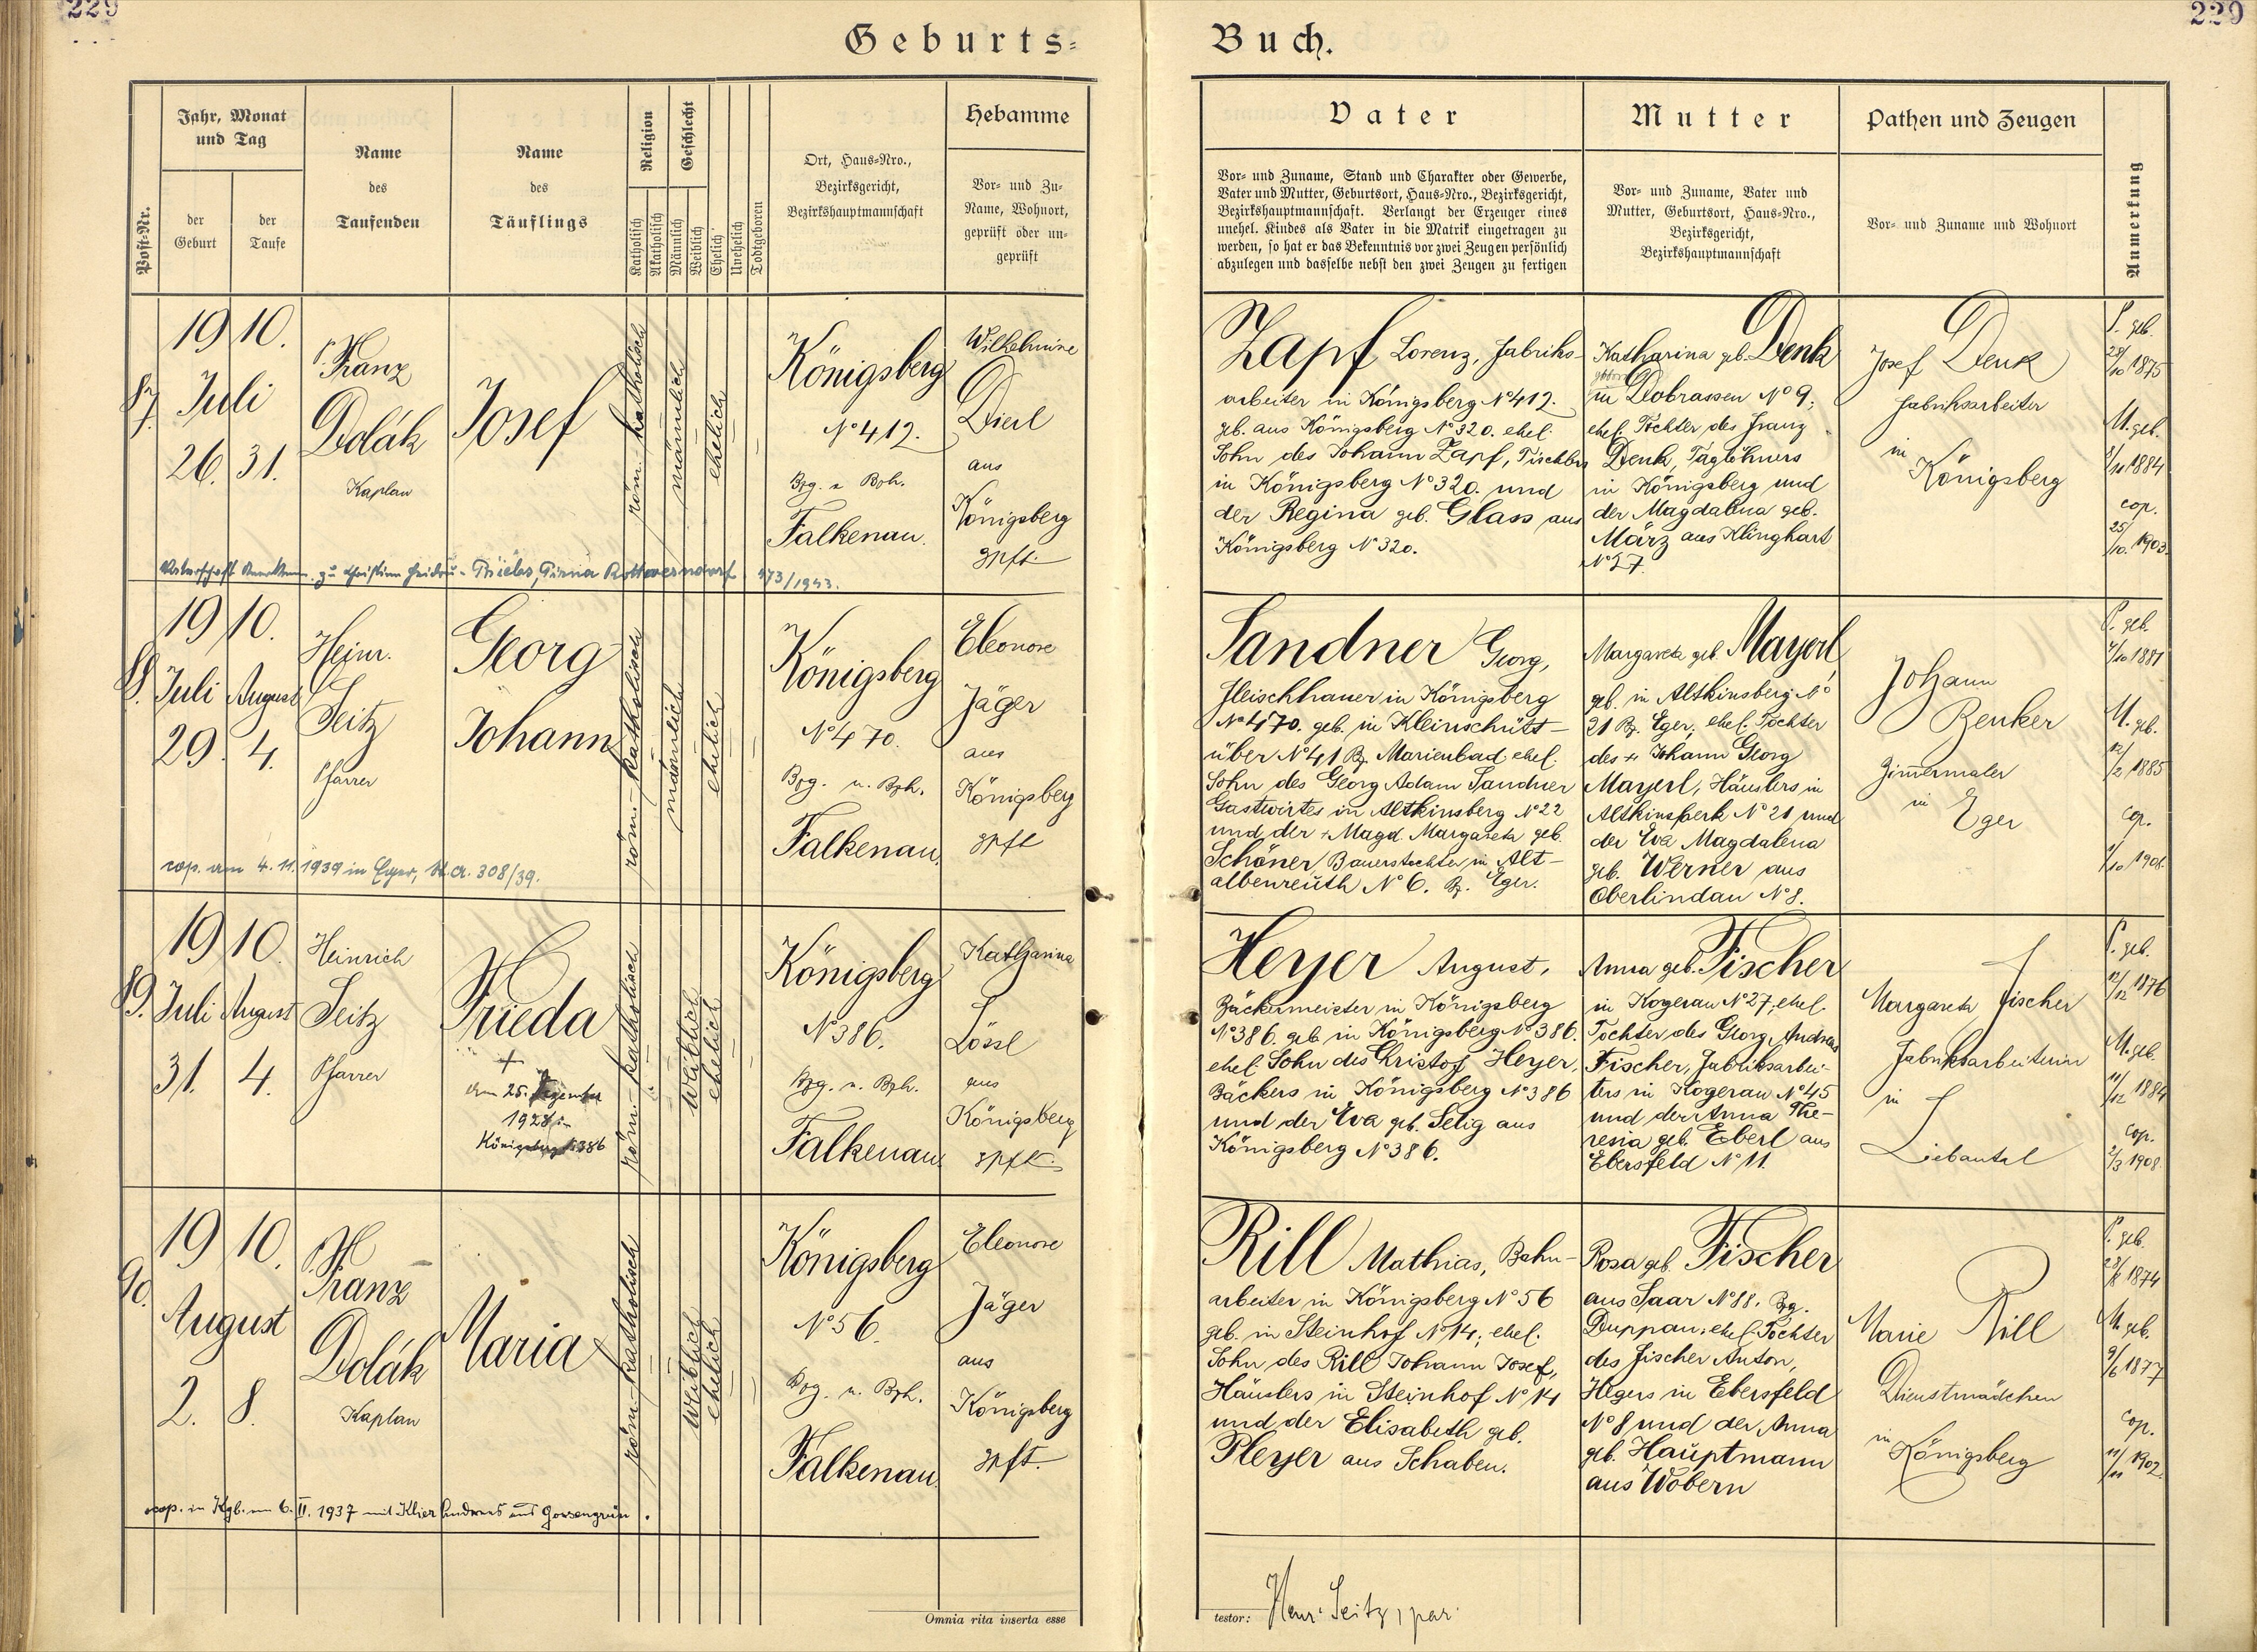 229
229
Geburts=
Buch.
Post=Nr.
Jahr, Monat
und Tag
der
Geburt
der
Taufe
Name
des
Taufenden
Name
des
Täuflings
Religion
Katholisch
Akatholisch
Geschlecht
Männlich
Weiblich
Ehelich
Unehelich
Todtgeboren
Ort, Haus=Nro.,
Bezirksgericht,
Bezirkshauptmannschaft
Hebamme
Vor= und Zu=
Name, Wohnort,
geprüft oder un=
geprüft
Vater
Vor= und Zuname, Stand und Charakter oder Gewerbe,
Vater und Mutter, Geburtsort, Haus=Nro., Bezirksgericht,
Bezirkshauptmannschaft. Verlangt der Erzeuger eines
unehel. Kindes als Vater in die Matrik eingetragen zu
werden, so hat er das Bekenntnis vor zwei Zeugen persönlich
abzulegen und dasselbe nebst den zwei Zeugen zu fertigen
Mutter
Vor= und Zuname, Vater und
Mutter, Geburtsort, Haus=Nro.,
Bezirksgericht,
Bezirkshauptmannschaft
Pathen und Zeugen
Vor= und Zuname und Wohnort
Anmerkung
87.
1910.
Juli
26. 31.
P. Franz
Dolák
Kaplan
Josef
röm.-katholisch
männlich
ehelich
Königsberg
N° 412.
Bzg. u. Bzh.
Falkenau.
Wilhelmine
Dierl
aus
Königsberg
gpft.
Zapf Lorenz, Fabriks-
arbeiter in Königsberg N° 412.
geb. aus Königsberg N° 320. ehel.
Sohn des Johann Zapf, Tischlers
in Königsberg N° 320. und
der Regina geb. Glass aus
Königsberg N° 320.
Katharina geb. Denk
in Dobrassen N° 9;
ehel. Tochter des Franz
Denk, Taglöhners
in Königsberg und
der Magdalena geb.
März aus Klinghart
N° 27.
Josef Denk
Fabriksarbeiter
in
Königsberg
P. geb.
28/10 1875
M. geb.
1884
cop.
25/10. 1903.
zu Christine 473/1943.
88.
1910.
Juli August
29. 4.
Heinr.
Seitz
Pfarrer
Georg
Johann
röm.-katholisch
männlich
ehelich
Königsberg
N° 470.
Bzg. u. Bzh.
Falkenau.
Eleonore
Jäger
aus
Königsberg
gpft
Sandner Georg,
Fleischhauer in Königsberg
N° 470. geb. in Kleinschütt-
über N° 41 Bz. Marienbad ehel.
Sohn des Georg Adam Sandner
Gastwirtes in Altkinsberg N° 22
und der + Magd. Margareta geb.
Schöner, Bauerstochter in Alt-
albenreuth N° 6. Bz. Eger.
Margareta geb. Mayerl
geb. in Altkinsberg N°
21 Bz. Eger, ehel. Tochter
des + Johann Georg
Mayerl, Häuslers in
Altkinsperk N° 21 und
der Eva Magdalena
geb. Werner aus
Oberlindau N° 8.
Johann
Renker
Zimermaler
in
Eger
P. geb.
7/10 1881
M. geb.
12/2 1885
cop.
/10 1908.
cop. am 4. 11. 1939 in Eger, St. A. 308/39.
89.
1910.
Juli August
31. 4.
Heinrich
Seitz
Pfarrer
Frieda
+
am 25. Dezember
1928 in
Königsberg 386
röm.-katholisch
weiblich
ehelich
Königsberg
N° 386.
Bzg. u. Bzh.
Falkenau.
Katharina
Lössl
aus
Königsberg
gpft.
Heyer August,
Bäckermeister in Königsberg
N° 386. geb. in Königsberg N° 386.
ehel. Sohn des Kristof Heyer,
Bäckers in Königsberg N° 386
und der Eva geb. Selig aus
Königsberg N° 386.
Anna geb. Fischer
in Kogerau N° 27, ehel.
Tochter des Georg Andreas
Fischer, Fabriksarbei-
ters in Kogerau N° 45
und der Anna The-
resia geb. Eberl aus
Ebersfeld N° 11.
Margareta Fischer
Fabriksarbeiterin
in
Liebautal
P. geb.
12/12 1876
M. geb.
11/12 1884
cop.
2/3 1908.
90.
1910.
August
2. 8.
P. Franz
Dolák
Kaplan
Maria
röm.-katholisch
weiblich
ehelich
Königsberg
N° 56.
Bzg. u. Bzh.
Falkenau.
Eleonore
Jäger
aus
Königsberg
gpft.
Rill Mathias, Bahn-
arbeiter in Königsberg N° 56
geb. in Steinhof N° 14; ehel.
Sohn des Rill Johann Josef,
Häuslers in Steinhof N° 14
und der Elisabeth geb.
Pleyer aus Schaben.
Rosa geb. Fischer
aus Saar N° 88. Bzg.
Duppau; ehel. Tochter
des Fischer Anton,
Hegers in Ebersfeld
N° 8 und der Anna
geb. Hauptmann
aus Wobern
Marie Rill
Dienstmädchen
in
Königsberg
P. geb.
1874
M. geb.
9/6 1877
cop.
11/11 1902.
cop. in Kgb. am 6. II. 1937 mit Klier Andreas aus Gossengrün.
Omnia rita inserta esse
testor: Henr. Seitz, par.